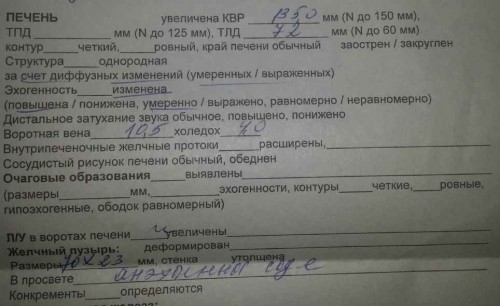 ПЕЧЕНЬ увеличена КВР 1350 мм (N до 150 мм),
ТПД мм (N до 125 мм), ТЛД 72 мм (N до 60 мм)
контур четкий, ровный, край печени обычный заострен / закруглен
Структура однородная
за счет диффузных изменений (умеренных / выраженных)
Эхогенность изменена
(повышена / понижена, умеренно / выражено, равномерно / неравномерно)
Дистальное затухание звука обычное, повышено, понижено
Воротная вена 10,5 холедох 4,0
Внутрипеченочные желчные протоки расширены,
Сосудистый рисунок печени обычный, обеднен
Очаговые образования выявлены
(размеры мм, эхогенности, контуры четкие, ровные,
гипоэхогенные, ободок равномерный)
Л/У в воротах печени увеличены
Желчный пузырь: деформирован
Размеры 70х23 мм, стенка утолщена
В просвете анэхогенны
Конкременты определяются